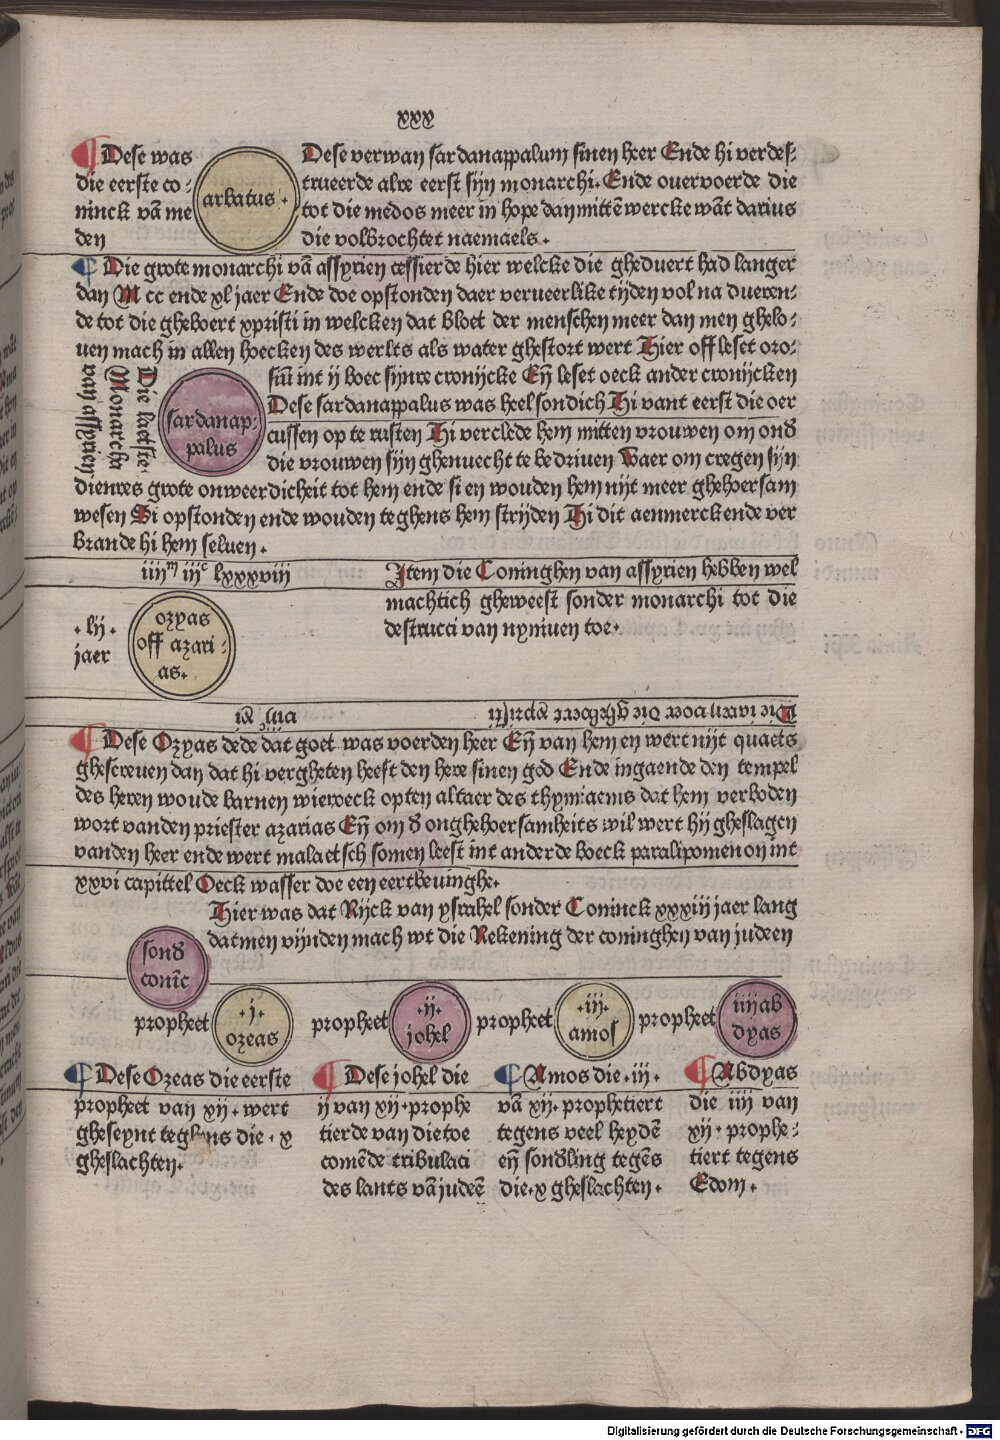 xxx
¶ Dese was
die eerste co⸗
ninck vā me
den
arbatus.
Dese verwan sardanappalum sinen heer Ende hi verdes⸗
trueerde alre eerst sijn monarchi. Ende ouervoerde die
tot die medos meer in hope dan mittē wercke wāt darius
die volbrochtet naemaels.
¶ Die grote monarchi vā assyrien cessierde hier welcke die gheduert had langer
dan M cc ende xl jaer Ende doe opstonden daer verueerlike tijden vol na dueren⸗
de tot die gheboert xpristi in welcken dat bloet der menschen meer dan men ghelo⸗
uen mach in allen hoecken des werlts als water ghestort wert Hier off leset oro⸗
siū int ij boec sijnre cronijcke Eñ leset oeck ander cronijcken
Die laetste
Monarcha
van assyrien
sardanap⸗
palus
Dese sardanappalus was heel sondich Hi vant eerst die oer
cussen op te rusten Hi verclede hem mitten vrouwen om ond
die vrouwen sijn ghenuecht te bedriuen Waer om cregen sijn
dienres grote onweerdicheit tot hem ende si en wouden hem nijt meer ghehoersam
wesen Si opstonden ende wouden teghens hem strijden Hi dit aenmerckende ver
brande hi hem seluen.
iiijᵐ iijᶜ lxxxviij
Item die Coninghen van assyrien hebben wel
machtich gheweest sonder monarchi tot die
destrucci van nyniuen toe.
. lij .
jaer
ozyas
off azari⸗
as.
Die iaren voer die gheboert xpristi
viijᶜ xi
¶ Dese Ozyas dede dat goet was voerden heer Eñ van hem en wert nijt quaets
ghescreuen dan dat hi vergheten heeft den here sinen god Ende ingaende den tempel
des heren woude barnen wieroeck opten altaer des thymiaems dat hem verboden
wort vanden priester azarias Eñ om d onghehoersamheits wil wert hij gheslagen
vanden heer ende wert malaetsch somen leest int anderde boeck paralipomenon int
xxvi capittel Oeck wasser doe een eertbeuinghe.
Hier was dat Rijck van ysrahel sonder Coninck xxxiij jaer lang
datmen vijnden mach wt die Rekening der coninghen van judeen
sond
conīc
propheet
.j.
ozeas
propheet
.ij.
johel
propheet
.iij.
amos
propheet
iiij ab
dyas
¶ Dese Ozeas die eerste
propheet van xij. wert
gheseynt teghens die . x
gheslachten.
¶ Dese johel die
ij van xij. prophe
tierde van die toe
comēde tribulaci
des lants vā judeē
¶ Amos die .iij.
vā xij. prophetiert
tegens veel heydē
eñ sondling tegēs
die .x gheslachten.
¶ Abdyas
die iiij van
xij. prophe⸗
tiert tegens
Edom.
Digitalisierung gefördert durch die Deutsche Forschungsgemeinschaft - DFG